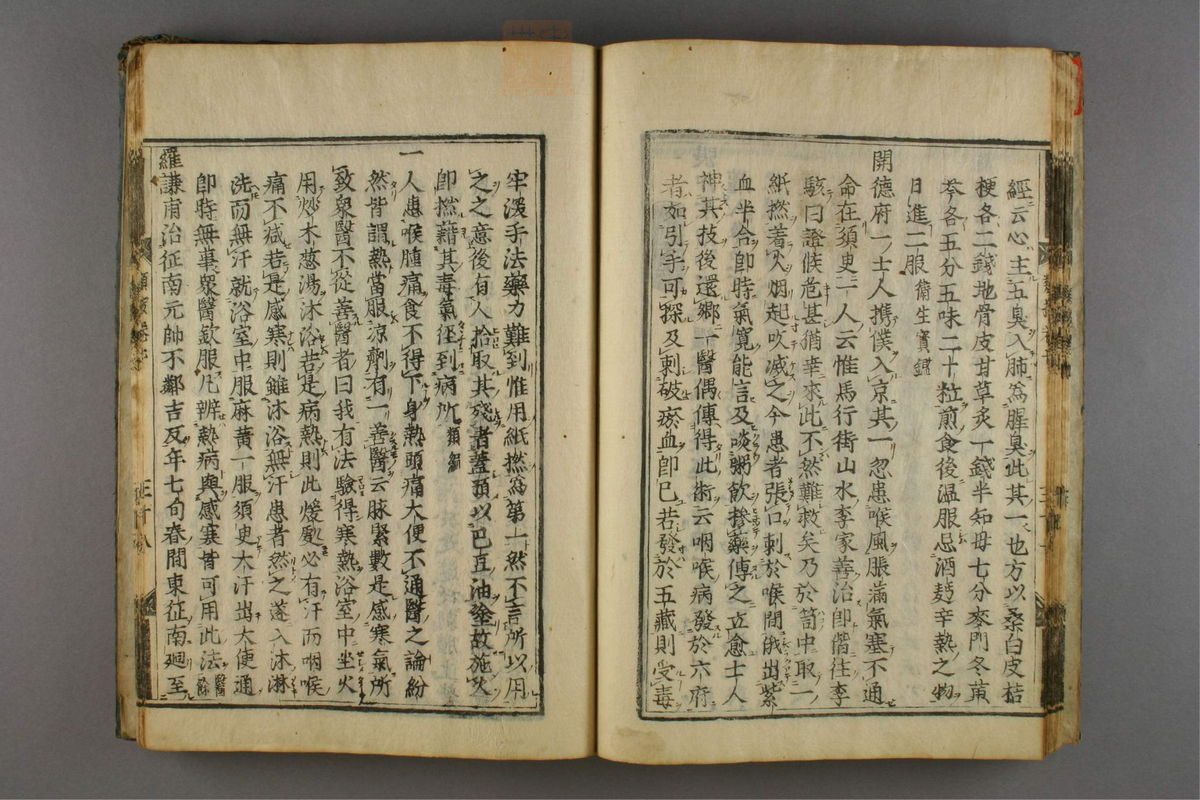 經云心主五臭入肺為腥臭此其一也方以桑白皮桔
梗各二錢地骨皮甘草炙一錢半知母七分麥門冬黃
芩各五分五味二十粒煎食後温服忌酒麪辛熱之物
日進二服 衛生寶鑑
開德府一士人携僕入京其一忽患喉風脹滿氣塞不通
命在須臾一人云惟馬行街山水李家善治即偕往李
駭曰證候危甚猶幸來此不然難救矣乃於笥中取一
紙撚着火烟起吹滅之今患者張口刺於喉間俄出紫
血半合即時氣寛能言及啖粥飲摻藥傅之立愈士人
神其技後還鄉一醫偶傳得此術云咽喉病發於六府
者如引手可探及刺破瘀血即已若發於五藏則受毒
牢深手法藥力難到惟用紙撚為第一然不言所以用
之之意後有人拾取其殘者蓋預以巴豆油塗故施火
即撚藉其毒氣徑到病所 類編
一人患喉腫痛食不得下身熱頭痛大便不通醫之論紛
然皆謂熱當服涼劑有一善醫云脉緊數是感寒氣所
致衆醫不從善醫者曰我有法驗得寒熱浴室中坐火
用炒木葱湯沐浴若是病熱則此煖㕑必有汗而咽喉
痛不减若是感寒則雖沐浴無汗患者然之遂入沐淋
洗而無汗就浴室中服麻黃一服須臾大汗出大便通
即時無事衆醫欽服凡辨熱病與感寒皆可用此法 醫餘
羅謙甫治征南元帥不鄰吉反年七旬春間東征南廻至